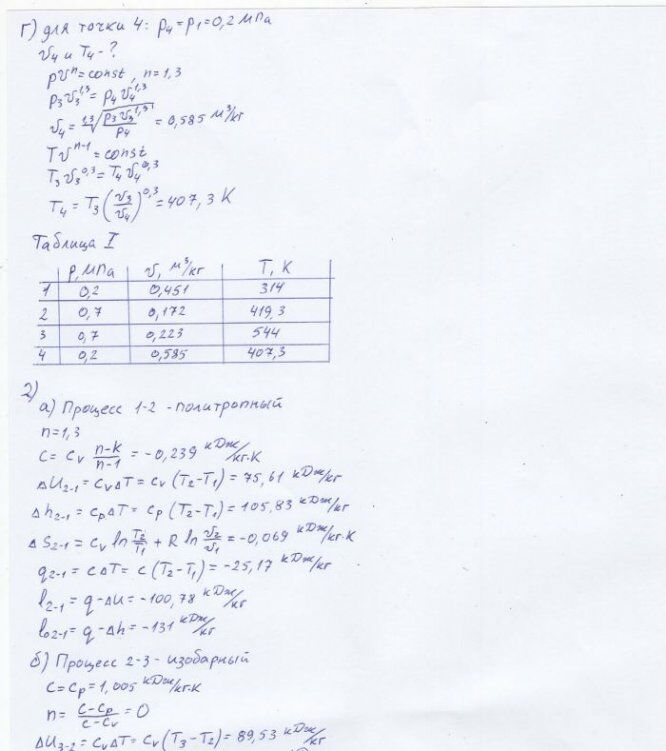 г) для точки 4: p₄=p₁=0,2 мПа
v₄ и T₄-?
pvⁿ=const, n=1,3
p₃v₃^1,3=p₄v₄^1,3
v₄=^1,3√(p₃v₃^1,3/p₄)=0,585 м³/кг
Tv^n-1=const
T₃v₃^0,3=T₄v₄^0,3
T₄=T₃(v₃/v₄)^0,3=407,3 К
Таблица I
p, мПа v, м³/кг T, К
1 0,2 0,451 314
2 0,7 0,172 419,3
3 0,7 0,223 544
4 0,2 0,585 407,3
2)
а) Процесс 1-2 -политропный
n=1,3
c=cᵥ (n-k)/(n-1) = -0,239 кДж/кг·К
ΔU₂₋₁=cᵥΔT=cᵥ(T₂-T₁)=75,61 кДж/кг
Δh₂₋₁=cₚΔT=cₚ(T₂-T₁)=105,83 кДж/кг
ΔS₂₋₁=cᵥ ln T₂/T₁ + R ln v₂/v₁=-0,069 кДж/кг·К
q₂₋₁=cΔT=c(T₂-T₁)=-25,17 кДж/кг
l₂₋₁=q-Δu=-100,78 кДж/кг
l₀₂₋₁=q-Δh=-131 кДж/кг
б) Процесс 2-3-изобарный
c=cₚ=1,005 кДж/кг·К
n=(c-cₚ)/(c-cᵥ)=0
ΔU₃₋₂=cᵥΔT=cᵥ(T₃-T₂)=89,53 кДж/кг